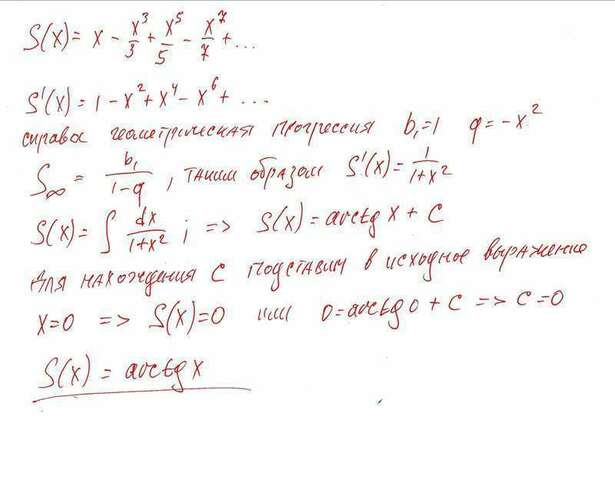 S(x) = x - x³/3 + x⁵/5 - x⁷/7 + ...
S'(x) = 1 - x² + x⁴ - x⁶ + ...
справа геометрическая прогрессия b₁=1 q = -x²
S∞ = b₁/(1-q), таким образом S'(x) = 1/(1+x²)
S(x) = ∫ dx/(1+x²) ; => S(x) = arctg x + C
Для нахождения C подставим в исходное выражение
x=0 => S(x)=0 или 0=arctg 0 + C => C=0
S(x) = arctg x